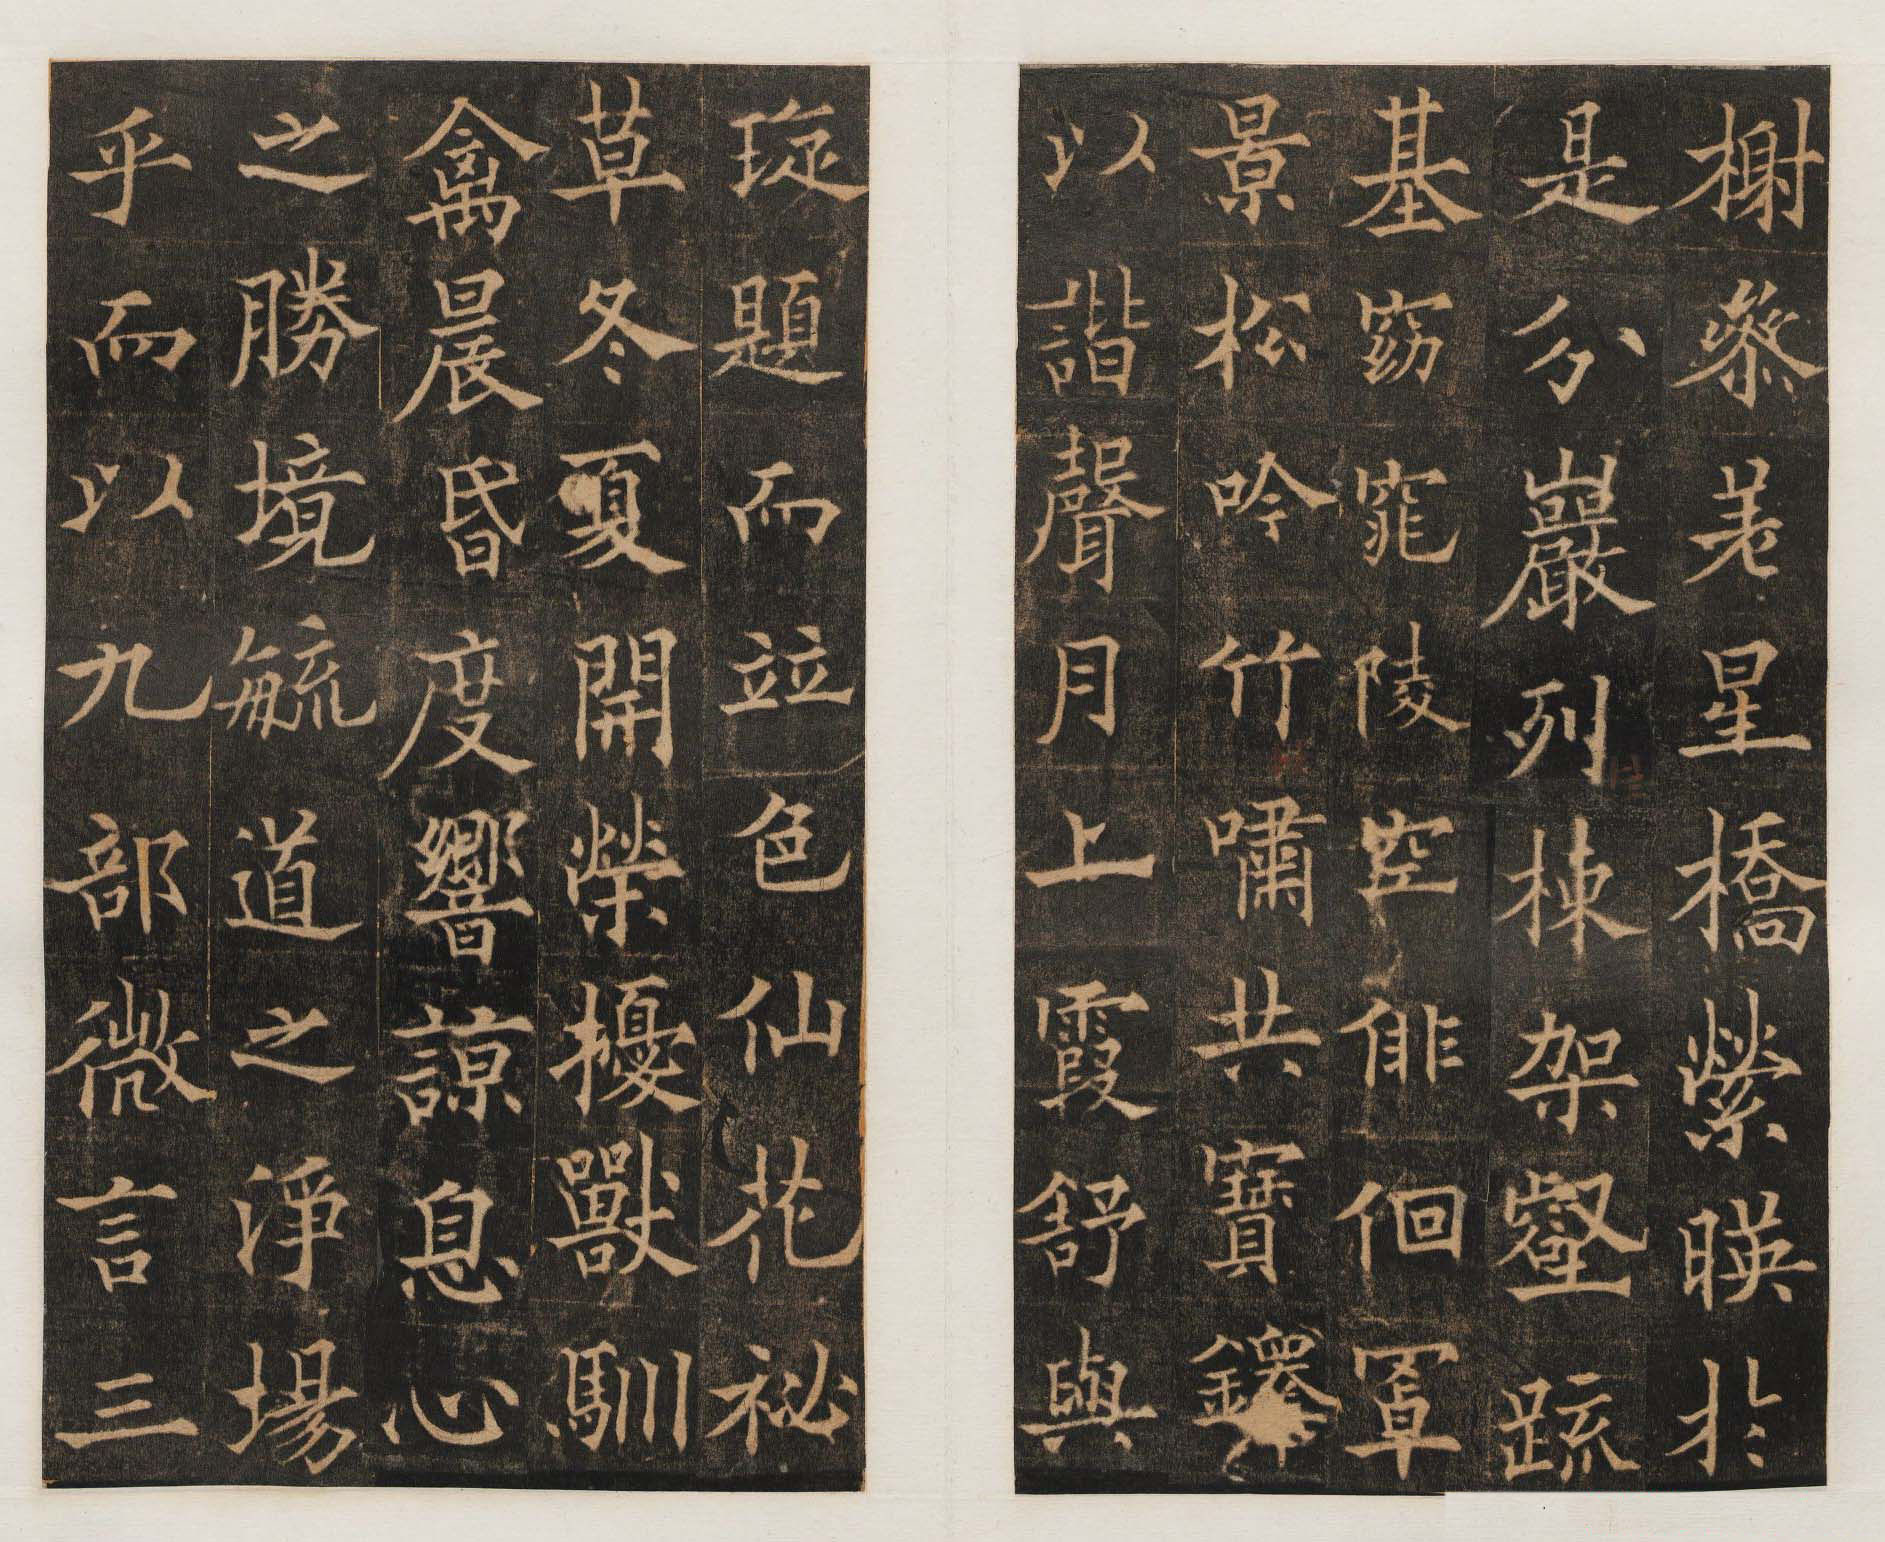 榭叅差星橋縈暎於
是分巖列棟架壑疏
基窈窕陵空俳佪罩
景松吟竹嘯共寶鐸
以諧聲月上霞舒與
琁題而竝色仙花祕
草冬夏開榮擾獸馴
禽晨昏度響諒息心
之勝境毓道之淨場
乎而以九部微言三